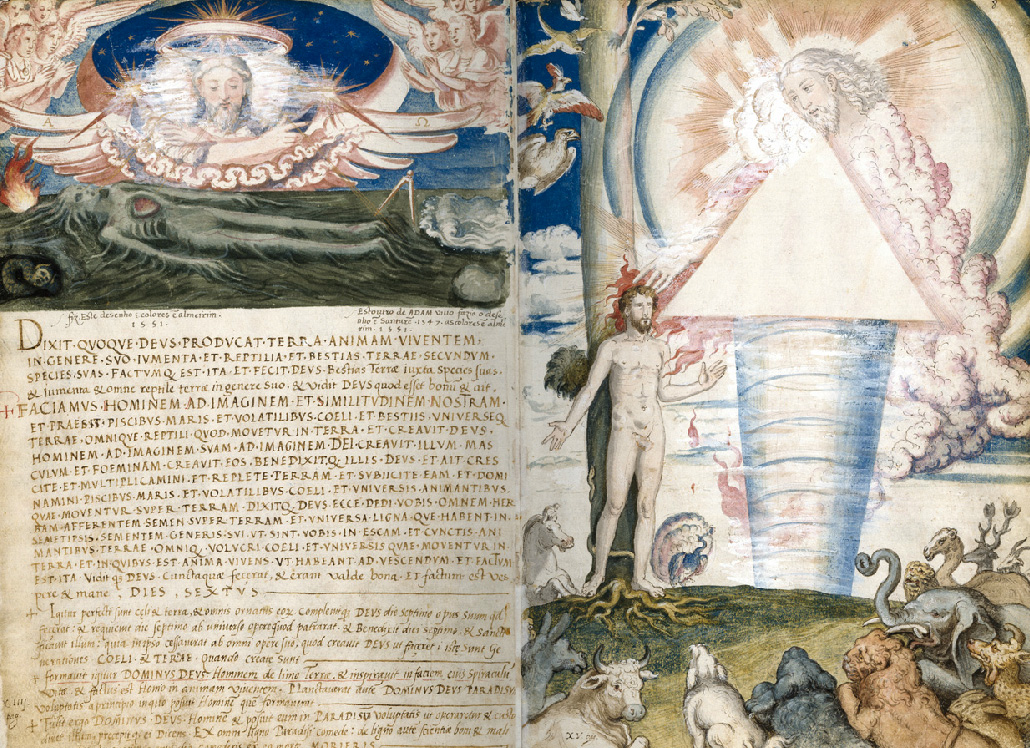 A
Ω
Este desenho
1551.
Esboyro de ADAM
1551.
DIXIT · QVOQVE · DEVS · PRODVCAT · TERRA · ANIMAM · VIVENTEM ·
IN · GENERE · SVO · IVMENTA · ET · REPTILIA · ET · BESTIAS · TERRAE · SECVNDVM ·
SPECIES · SVAS · FACTVMQ · EST · ITA · ET · FECIT · DEVS · Bestias Terrae iuxta Species suas,
& iumenta, & omne reptile terrae in genere suo. & vidit DEVS quod esset bonū & ait,
+ FACIAMVS · HOMINEM · AD · IMAGINEM · ET · SIMILITVDINEM · NOSTRAM ·
ET · PRAESIT · PISCIBVS · MARIS · ET · VOLATILIBVS · COELI · ET · BESTIIS · VNIVERSEQ
TERRAE · OMNIQVE · REPTILI · QVOD · MOVETVR · IN · TERRA · ET · CREAVIT · DEVS ·
HOMINEM · AD · IMAGINEM · SVAM · AD · IMAGINEM · DEI · CREAVIT · ILLVM · MAS
CVLVM · ET · FOEMINAM · CREAVIT · EOS · BENEDIXITQ · ILLIS · DEVS · ET · AIT · CRES
CITE · ET · MVLTIPLICAMINI · ET · REPLETE · TERRAM · ET · SVBIICITE · EAM · ET · DOMI
NAMINI · PISCIBVS · MARIS · ET · VOLATILIBVS · COELI · ET · VNIVERSIS · ANIMANTIBVS ·
QVAE · MOVENTVR · SVPER · TERRAM · DIXITQ · DEVS · ECCE · DEDI · VOBIS · OMNEM · HER
BAM · AFFERENTEM · SEMEN · SVPER · TERRAM · ET · VNIVERSA · LIGNA · QVE · HABENT · IN ·
SEMETIPSIS · SEMENTEM · GENERIS · SVI · VT · SINT · VOBIS · IN · ESCAM · ET · CVNCTIS · ANI
MANTIBVS · TERRAE · OMNIQ · VOLVCRI · COELI · ET · VNIVERSIS · QVAE · MOVENTVR · IN ·
TERRA · ET · IN · QVIBVS · EST · ANIMA · VIVENS · VT · HABEANT · AD · VESCENDVM · ET · FACTVM
EST · ITA · Viditq DEVS · Cunctaque fecerat, & erant valde bona · Et factum est ves
pere & mane, DIES, SEXTVS
+ Igitur perfecti sunt coeli & terra, & omnis ornatus eorum Complevitq DEVS die septimo opus suum quod
fecerat · & requievit die septimo ab universo opere quod patrarat · & Benedixit diei septimo · & sancti
ficavit illum : quia in ipso cessaverat ab omni opere suo, quod creavit DEVS ut faceret : iste sunt Ge
nerationes COELI & TERRAE · Quando create Sunt
+ Formavit igitur DOMINVS DEVS Hominem de limo Terrae, & inspiravit in faciem eius Spiraculū
Vitae & factus est Homo in animam viventem, Plantaverat autē DOMINVS DEVS PARADISŪ
voluptatis a principio in quo posuit Hominē quē formaverat
+ Tulit ergo DOMINVS · DEVS · Hominē & posuit eum in PARADISV voluptatis ut operaretur &
illum precepitq ei Dicens · EX omni ligno Paradisi comede : de ligno autē scientiae boni & mali
MORIERIS